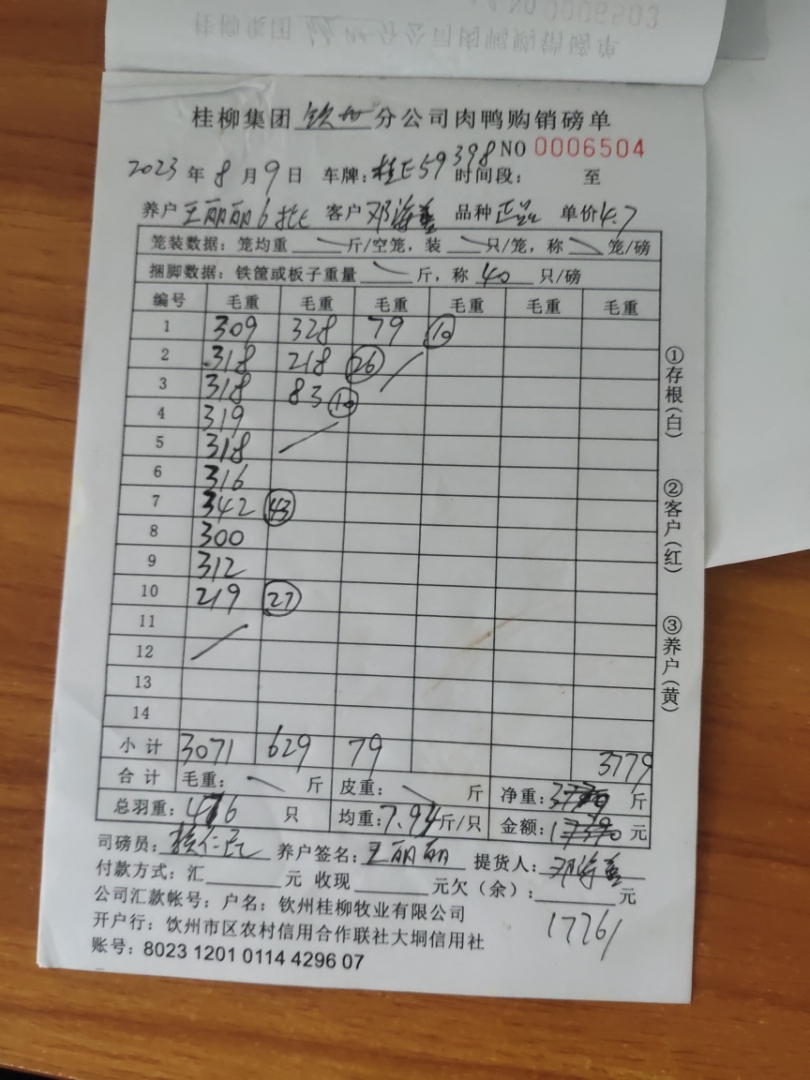 桂柳集团 钦州 分公司肉鸭购销磅单
NO 0006504
2023 年 8 月 9 日 车牌: 桂E59398 时间段: 至
养户 王丽丽6批 客户 邓海 品种 正品 单价 4.7
笼装数据: 笼均重 斤/空笼, 装 只/笼, 称 笼/磅
捆脚数据: 铁筐或板子重量 斤, 称 40 只/磅
编号 毛重 毛重 毛重 毛重 毛重 毛重
1 309 328 79 ⑩
2 318 218 ㉖
3 318 83 ⑩
4 319
5 318
6 316
7 342 ㊸
8 300
9 312
10 219 ㉗
11
12
13
14
小计 3071 629 79 3779
合计 毛重: 斤 皮重: 斤 净重: 斤
总羽重: 476 只 均重: 7.94 斤/只 金额: 元
司磅员: 养户签名: 王丽丽 提货人: 邓海
付款方式: 汇 元 收现 元欠(余): 元
17761
公司汇款帐号: 户名: 钦州桂柳牧业有限公司
开户行: 钦州市区农村信用合作联社大垌信用社
账号: 8023 1201 0114 4296 07
①存根(白)
②客户(红)
③养户(黄)